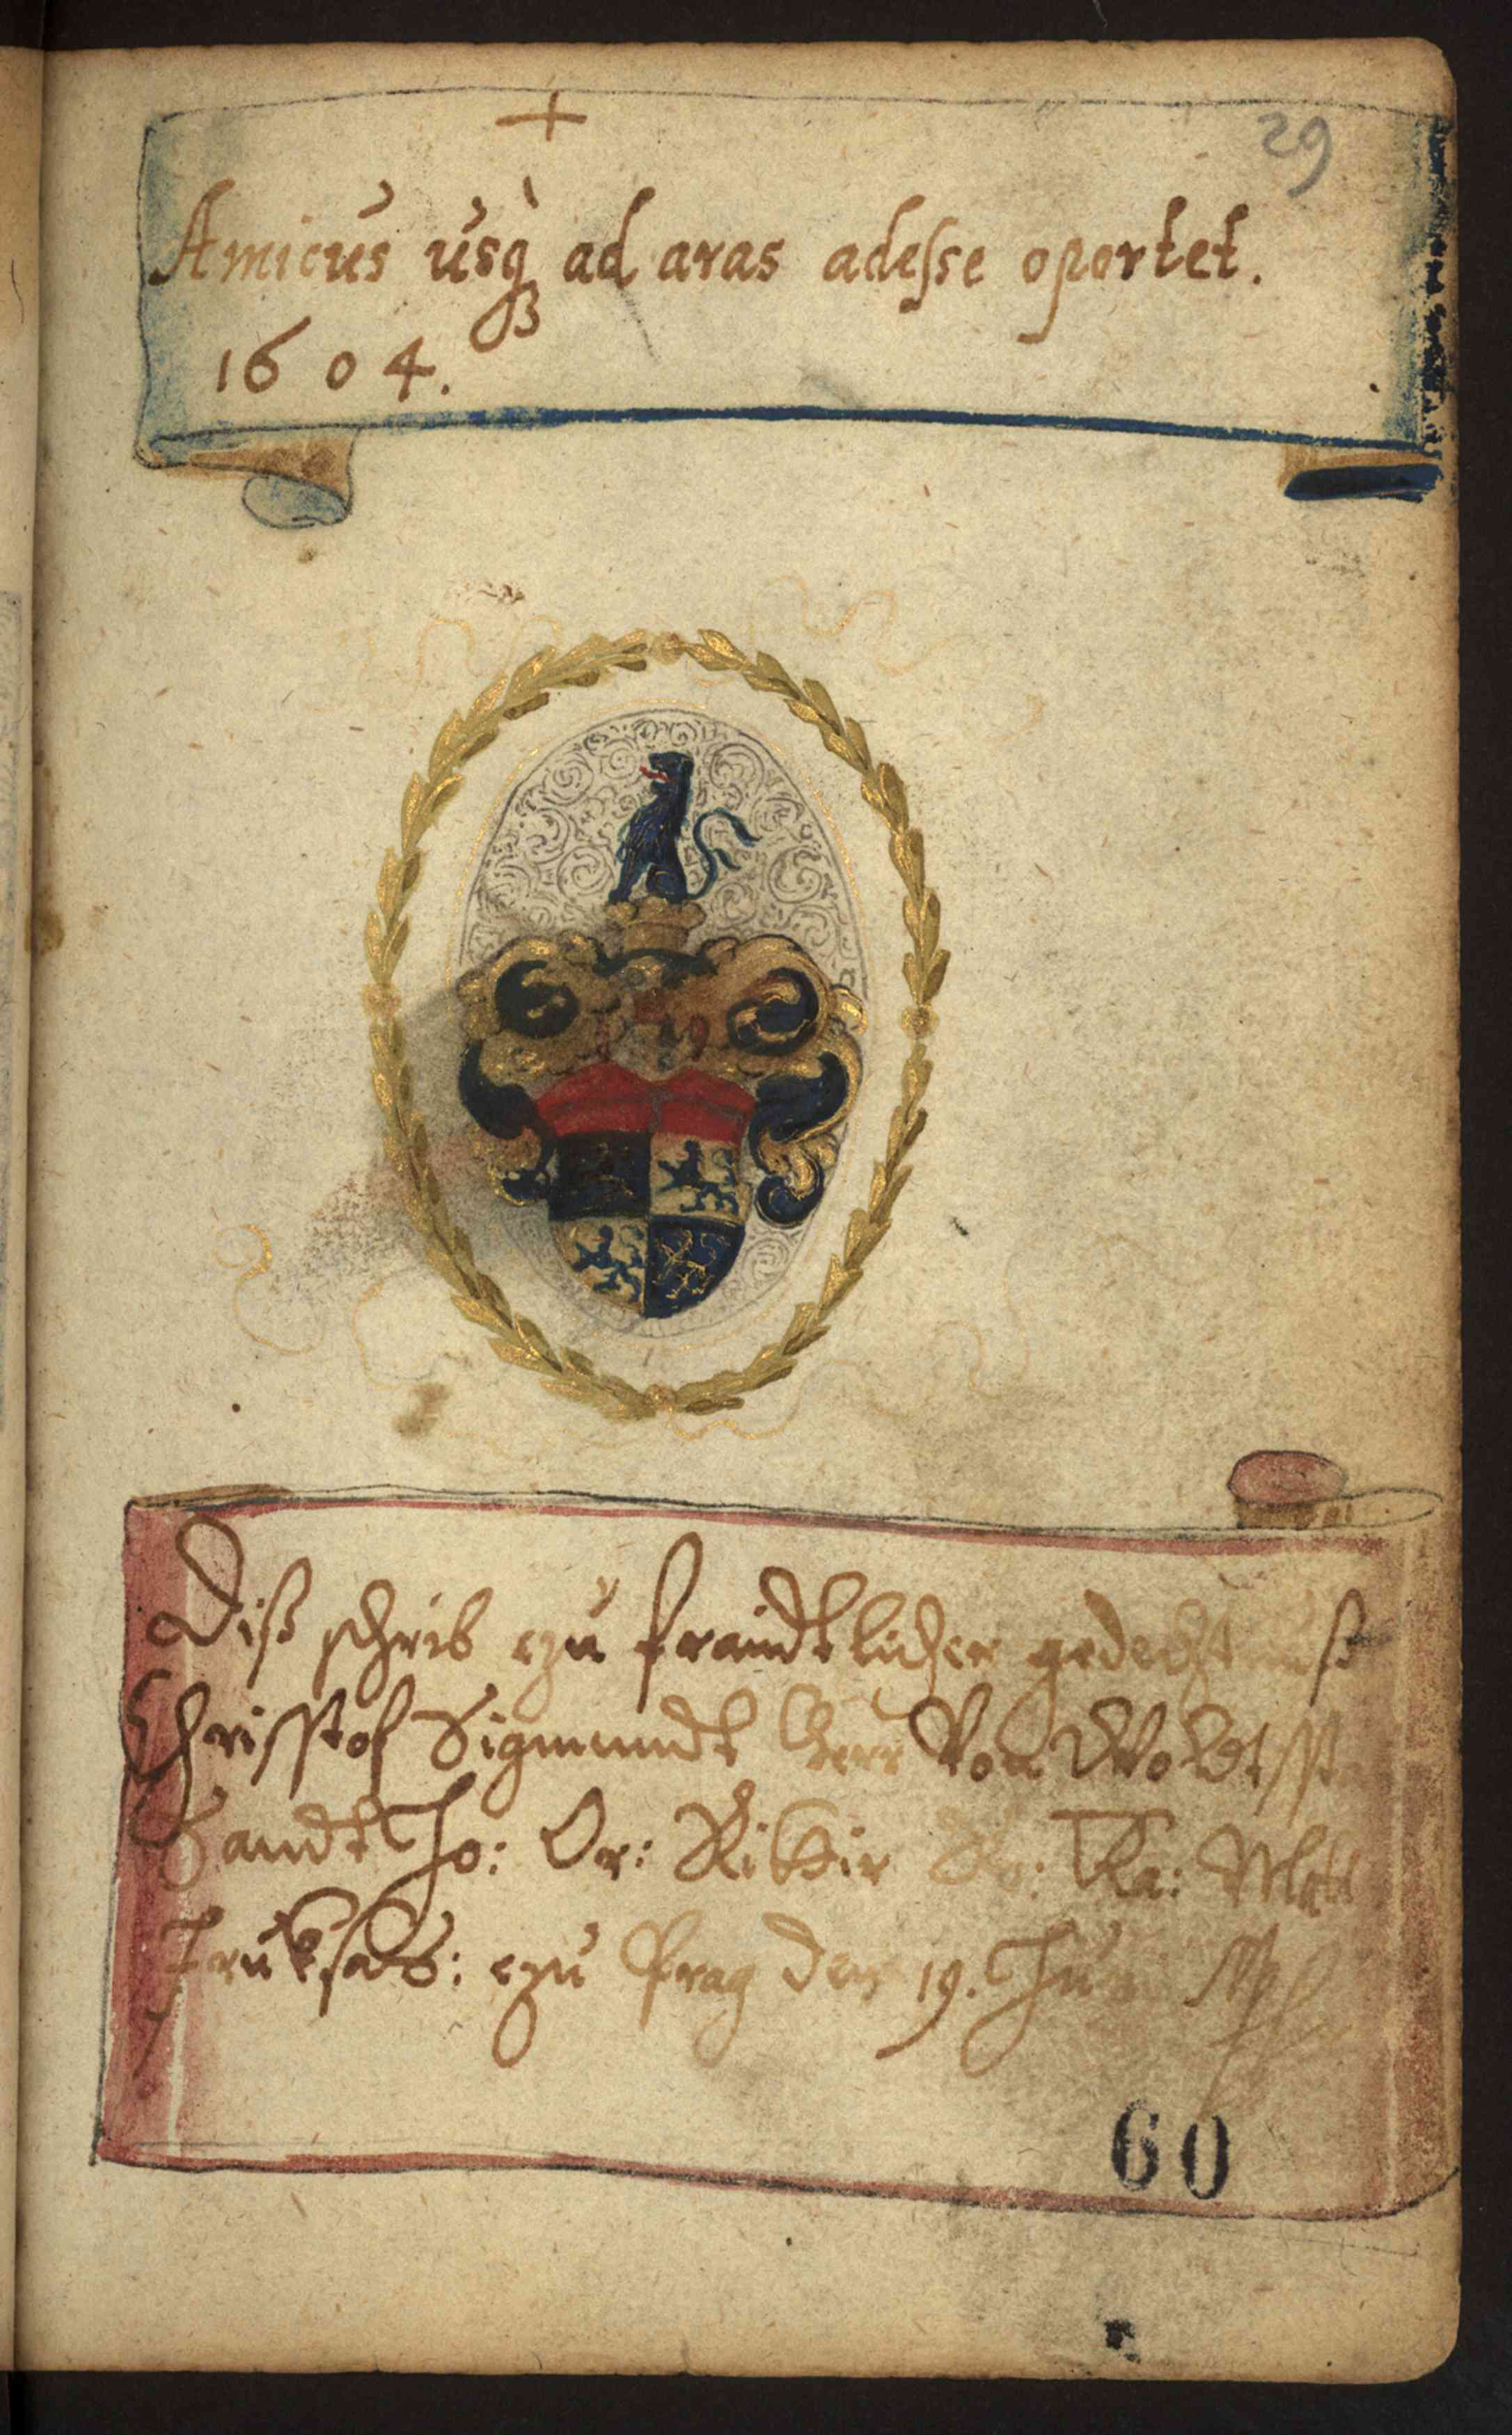 29
Amicus usq3 ad aras adesse oportet.
1604.
Diß schrib czu fraindtlicher gedechtnuß
Chrisstof Sigmundt Herr Von
Sandt Jo: Or: Rittir Rö: Ka: Mätt
Truksas: czu Prag den 19. Jun
60